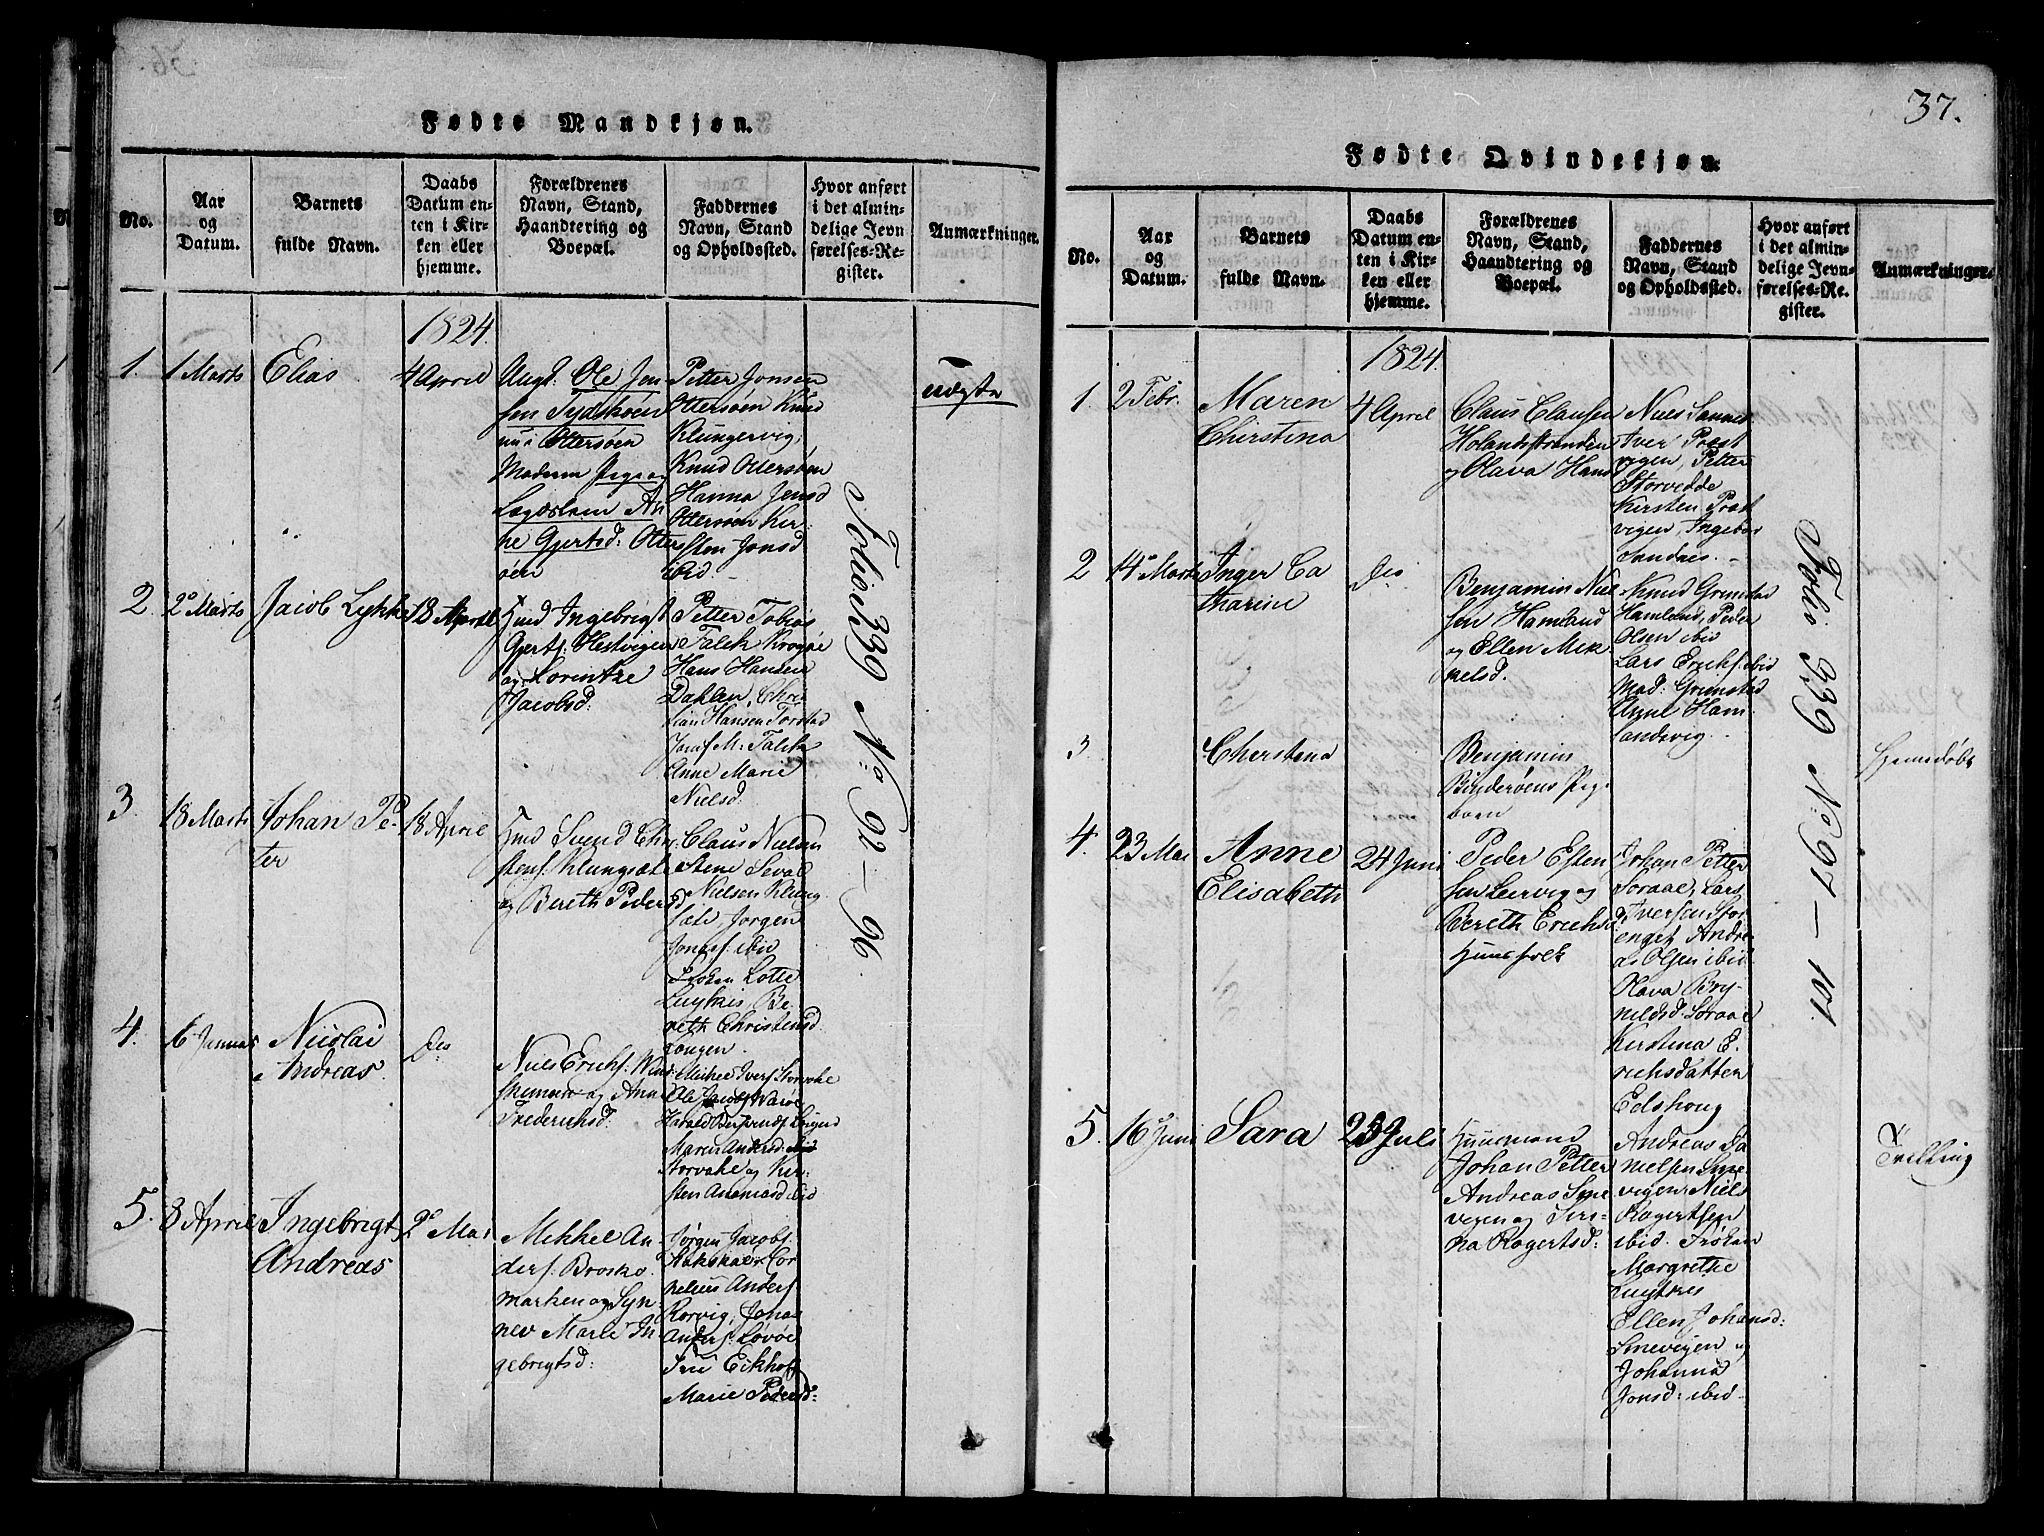 Fødte Mandkjøn.
No.
Aar
og
Datum.
Barnets
fulde Navn.
Daabs
Datum en-
ten i Kir-
ken eller
hjemme.
Forældrenes
Navn, Stand,
Haandtering og
Boepæl.
Faddernes
Navn, Stand
og Opholdssted.
Hvor anført
i det almin-
delige Jevn
førelses-Re-
gister.
Anmærkninger.
1824.
1.
1 Marts
Elias
4 April
Ungk: Ole Jen
sen Tydskøen
nu i Ottersøen
Moderen Pige og
Lægdslem An
ne Gjertsd: Otters
øen
Petter Jonsen
Ottersøen Knud
Klungervig,
Knud Ottersøen
Hanna Jensd
Ottersøen Kir-
sten Jonsd
ibid.
uægte
2.
2 Marts
Jacob Lykke
18 April
Hmd Ingebrigt
Gjerts: Hestvigen
og Lorentze
Jacobsd:
Petter Tobias
Falch Krogøe
Hans Hansen
Dahlen, Chri-
stian Hansen Torstad
Josef M: Falch
Anne Marie
Nielsd.
3.
18 Marts
Johan Pe-
ter
18 April
Hmd Svend Chri
stens: Klungsæt
og Bereth Pedersd
Claus Nielsen
Nielsen Klung
sæt, Jørgen
Jonass: ibid
Frøken Lotte
Luytkis, Be-
reth Christensd.
Longen.
4.
6 Januar
Nicolai
Andreas.
do
Niels Erichs:
og Ana
Frederichsd.
Michel Ivers: Storvahe
Ole Jacobs Varøe
Maren Andersd: ibid
Storvahe og Kir-
sten Ananiasd ibid
5.
8 April
Ingebrigt
Andreas
2 Mai
Mikkel An-
ders: Broske-
marken og Syn-
nev Marie In
gebrigtsd:
Jørgen Jacobs:
Cor
nelius Anders
Rørvig, Jonas
Anders: Løvøe
Eckhof
Marie Pedersd:
Folio 339 No: 92 – 96.
37.
Fødte Qvindekjøn.
No.
Aar
og
Datum.
Barnets
fulde Navn.
Daabs
Datum en-
ten i Kir-
ken eller
hjemme.
Forældrenes
Navn, Stand,
Haandtering og
Boepæl.
Faddernes
Navn, Stand
og Opholdssted.
Hvor anført
i det almin-
delige Jevn-
førelses-Re-
gister.
Anmærkninger.
1824.
1.
2 Febr.
Maren
Chirstina
4 April
Claus Clausen
Holandsstranden
og Olava Hans
Niels Sannes
Iver Præst
vigen, Petter
Storvedde
Kirsten Præst
vigen, Ingebor
Sandnes.
2
14 Marts
Inger Ca
tharine
do
Benjamin Niel
sen Hamland
og Ellen Mik
kelsd.
Knud Grimstad
Hamland, Peder
Olsen ibid
Lars Erichs: ibid
Mad: Grimstad
Anne Ham
landsvig.
3
Cherstina
Benjamin
Binderøens Pige
barn
Hjemedøbt
4.
23 Mai
Anne
Elisabeth
24 Juni
Peder Esten
sen Leervig og
Bereth Erichsd:
Huusfolk
Johan Petter
Soraae, Lars
Iversen Stor
enget, Andre
as Olsen ibid
Olava Bry-
nildsd: Soraae
Kirstina E-
richsdatter
Eidshoug
5.
16 Juni
Sara
25 Juli
Huusmand
Johan Petter
Andreas Sme
vigen og Sere-
na Rogertsd:
Andreas Da
nielsen Sme-
vigen, Niels
Rogertsen
ibid. Frøken
Margrethe
Luytkis
Ellen Johansd:
Smevigen og
Johanna
Jonsd: ibid
Tvilling
Folio 339 No: 97 – 101.